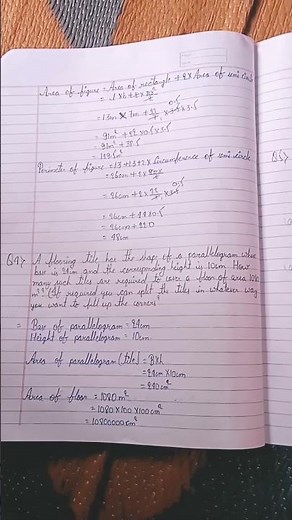 Area of figure = Area of rectangle + 2 × Area of semi circle
= 13m × 7m + 22/7 × 3.5 × 3.5
= 91m² + 22 × 0.5 × 3.5
= 91m² + 38.5
Perimeter of figure = 13+13+2 × circumference of semi circle
= 26cm + 22
= 48cm
Q4) A flooring tile has the shape of a parallelogram whose
base is 24cm and the corresponding height is 10cm. How
many such tiles are required to cover a floor of area 1080
m²? (If required you can split the tiles in whatever way
you want to fill up the corners)
= Base of parallelogram = 24cm
Height of parallelogram = 10cm.
Area of parallelogram (tile) = B×h
= 24cm × 10cm
= 240cm²
Area of floor = 1080m²
= 1080 × 100 × 100 cm²
= 10800000 cm²
Q5)